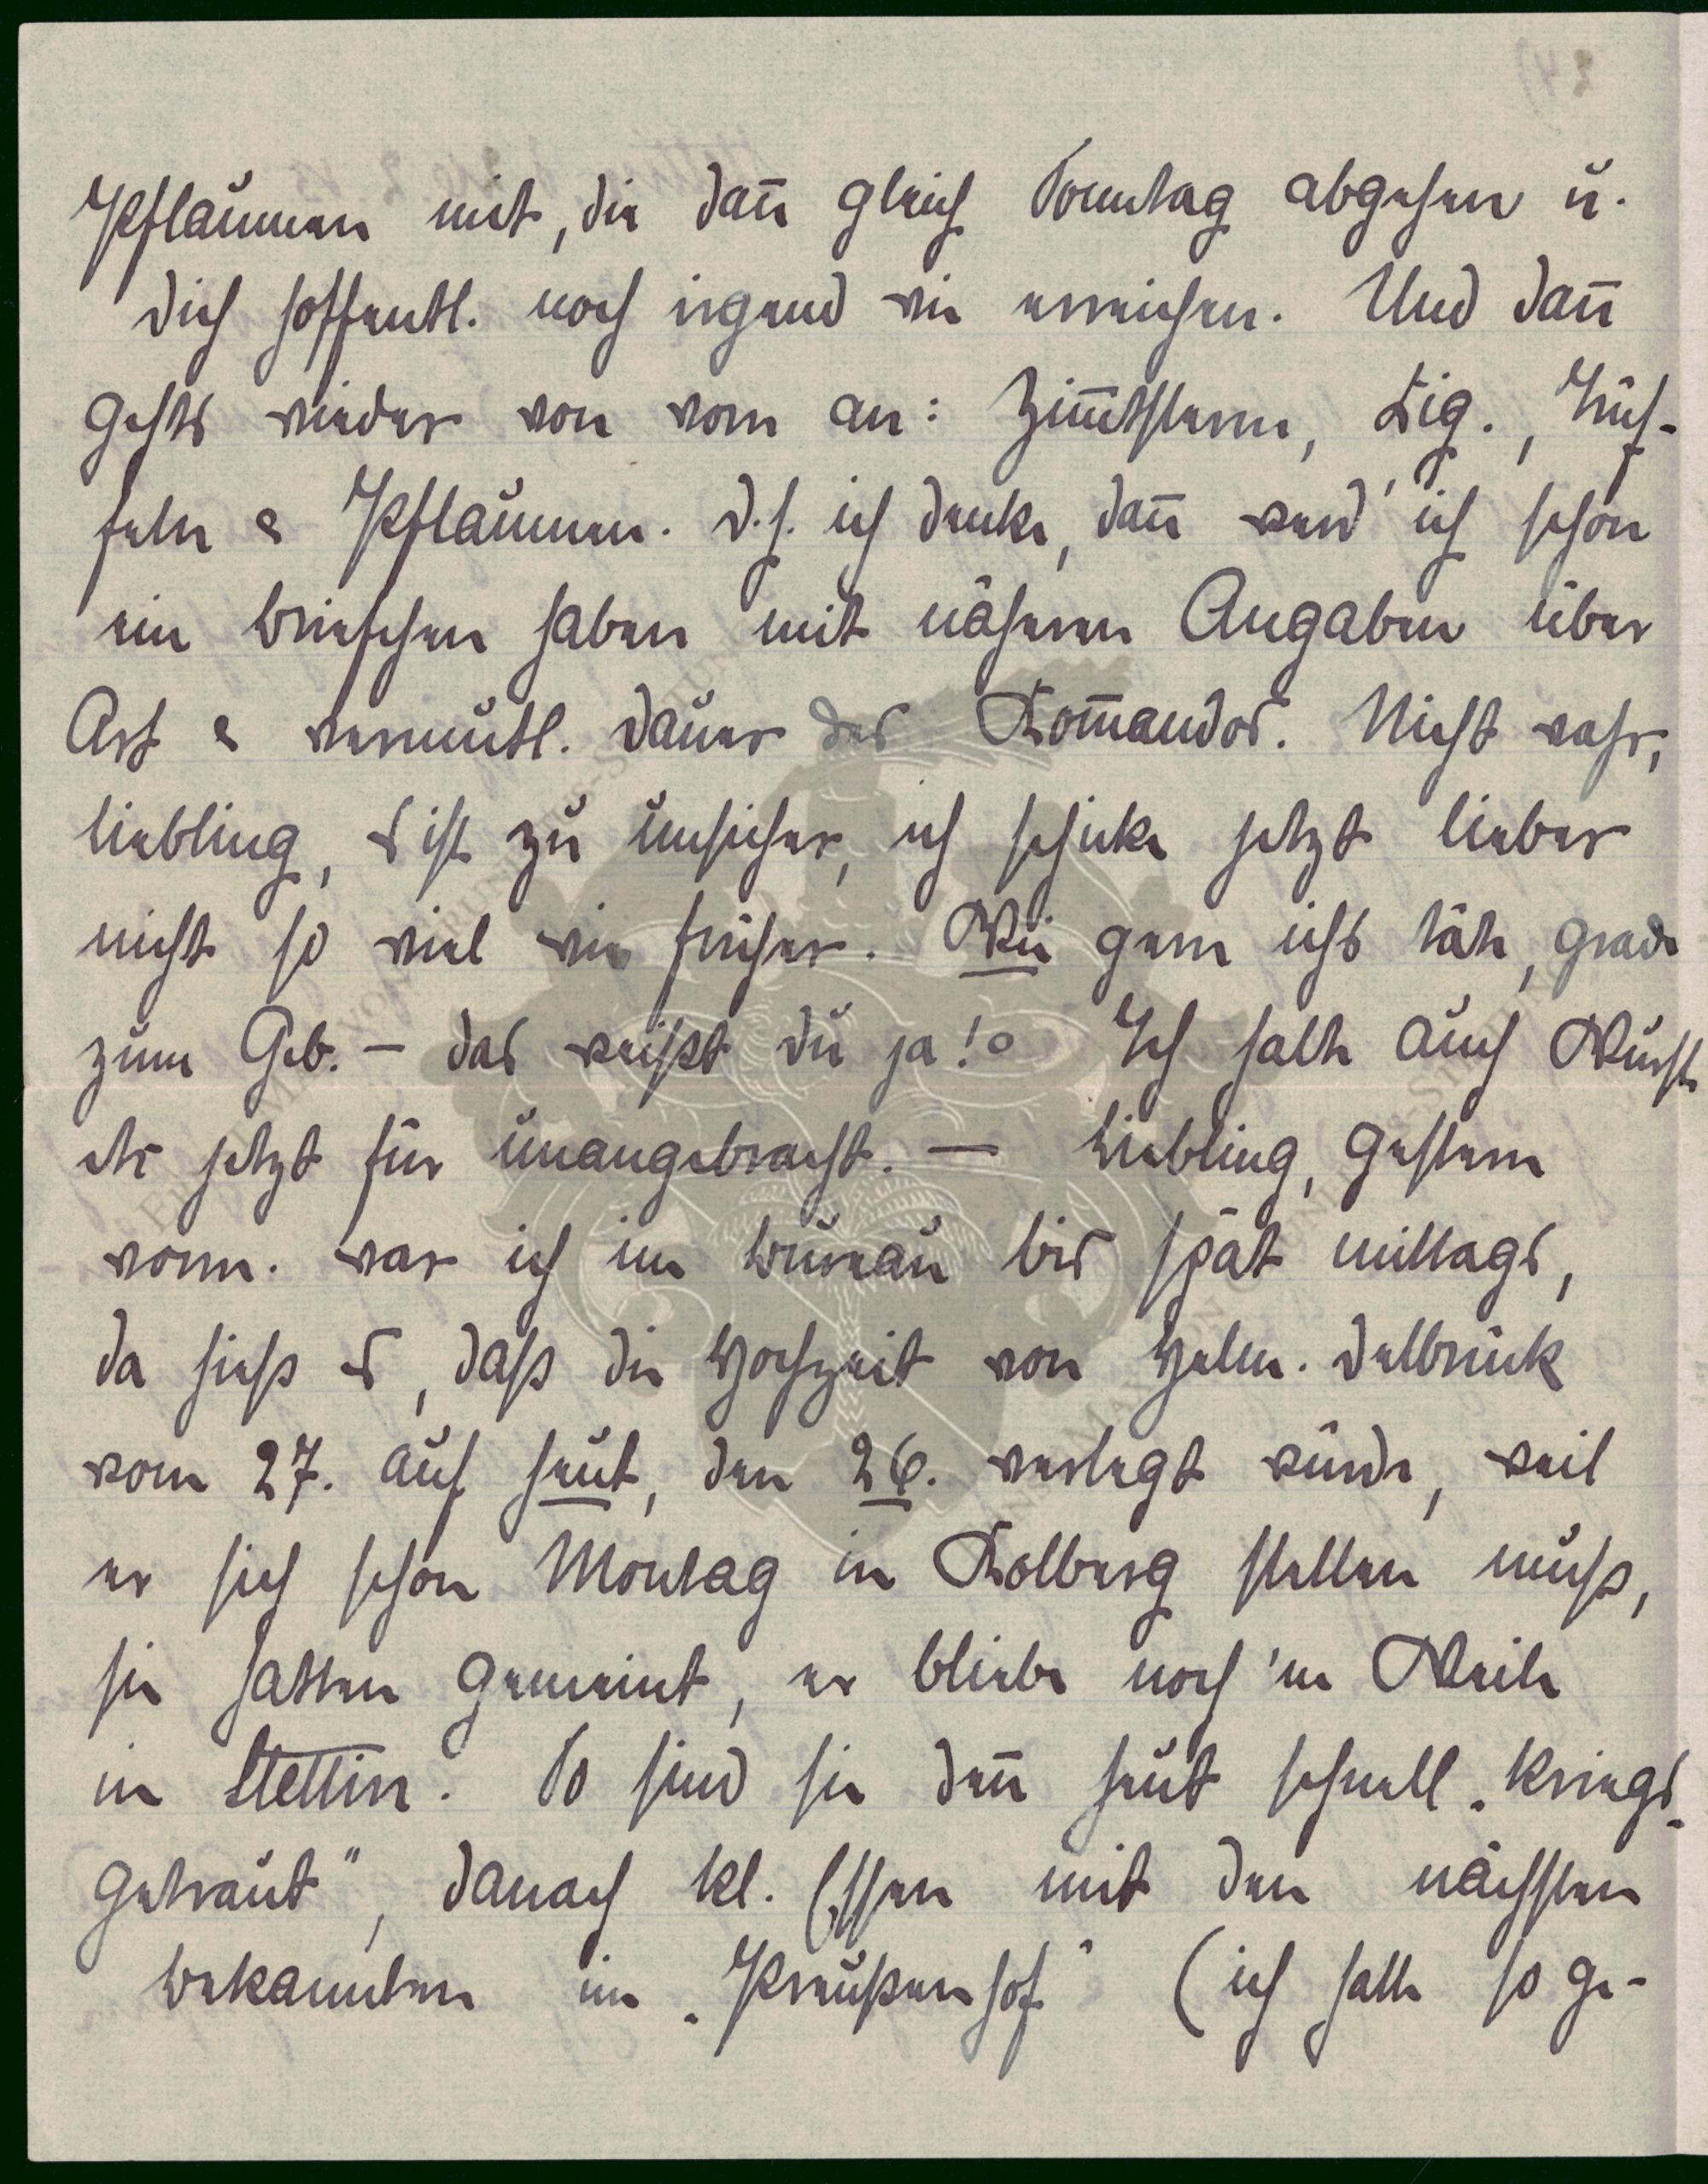 Pflaumen mit, die dan̄ gleich Sonntag abgehen u.
dich hoffentl. noch irgend wie erreichen. Und dan̄
gehts wieder von vorn an: Zim̄tsterne, Zig., Trüf-
feln & Pflaumen. d.h. ich denke, dan̄ werd' ich schon
ein Briefchen haben mit näheren Angaben über
Art & vermutl. Dauer des Kom̄andos. Nicht wahr,
Liebling, 's ist zu unsicher, ich schicke jetzt lieber
nicht so viel wie früher. Wie gern ichs täte, grade
zum Geb. – das weißt du ja! Ich halte auch Würste
etc jetzt für unangebracht. – Liebling, gestern
vorm. war ich im Bureau bis spät mittags,
da hieß es, daß die Hochzeit von Helm. Delbrück
vom 27. auf heut, den 26. verlegt würde, weil
er sich schon Montag in Kolberg stellen muß,
sie hatten gemeint, er bliebe noch 'ne Weile
in Stettin. So sind sie den̄ heut schnell „kriegs-
getraut", danach kl. Essen mit den nächsten
Bekannten im „Preußenhof" (ich hatte so ge-